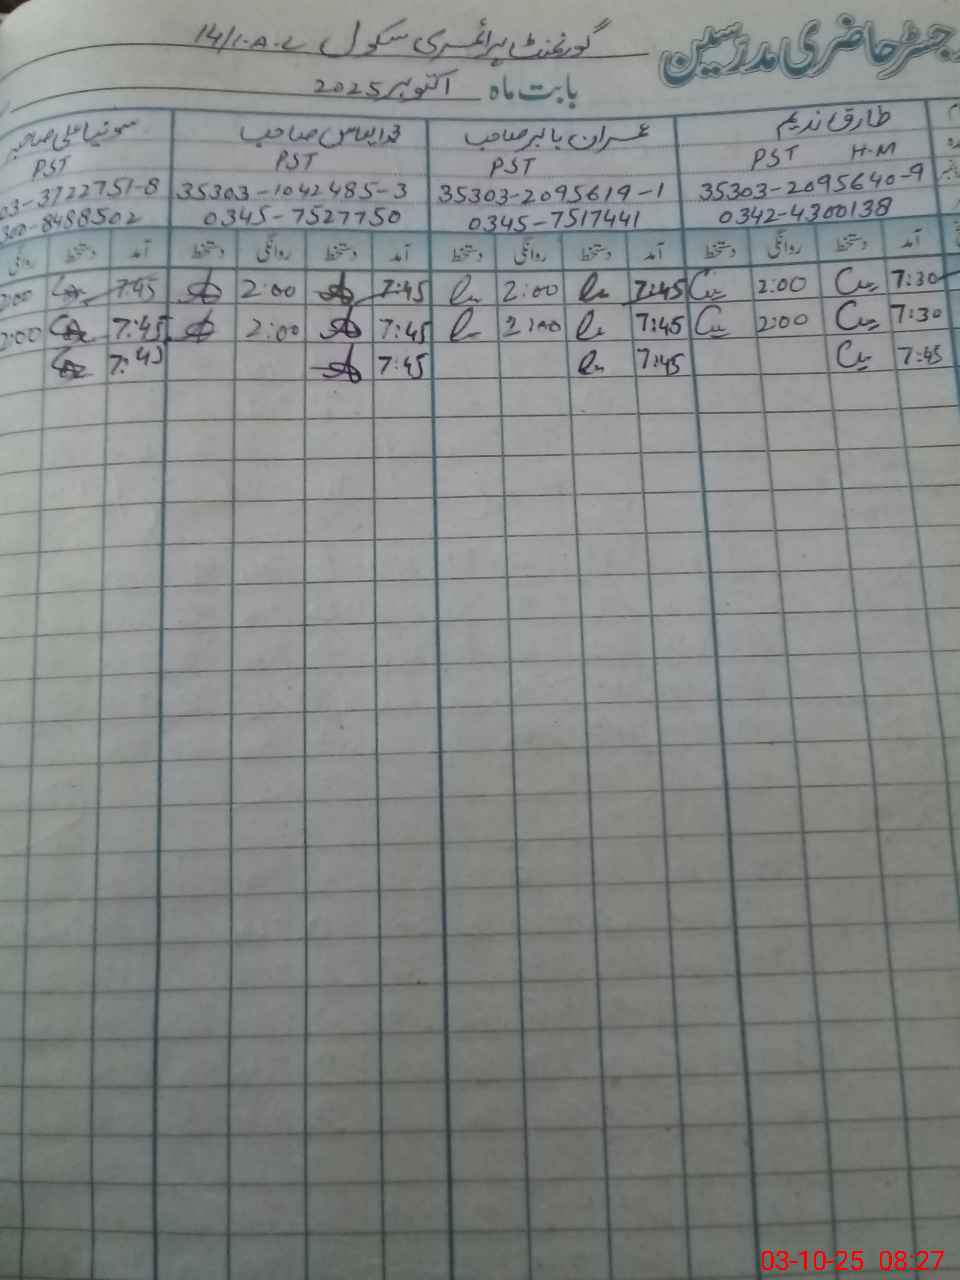 رجسٹر حاضری مدرسین گورنمنٹ پرائمری سکول 14/1-A-L
بابت ماہ اکتوبر 2025
طارق ندیم عمران بابر صاحب محمد الیاس صاحب سونیا علی صاحبہ
PST H-M PST PST PST
35303-2095640-9 35303-2095619-1 35303-1042485-3 03-3722751-8
0342-4300138 0345-7517441 0345-7527750 300-8488502
آمد دستخط روانگی دستخط آمد دستخط روانگی دستخط آمد دستخط روانگی دستخط آمد دستخط روانگی
7:30 2:00 7:45 2:00 7:45 2:00 7:45 2:00
7:30 2:00 7:45 2:00 7:45 2:00 7:45 2:00
7:45 7:45 7:45 7:45
03-10-25 08:27